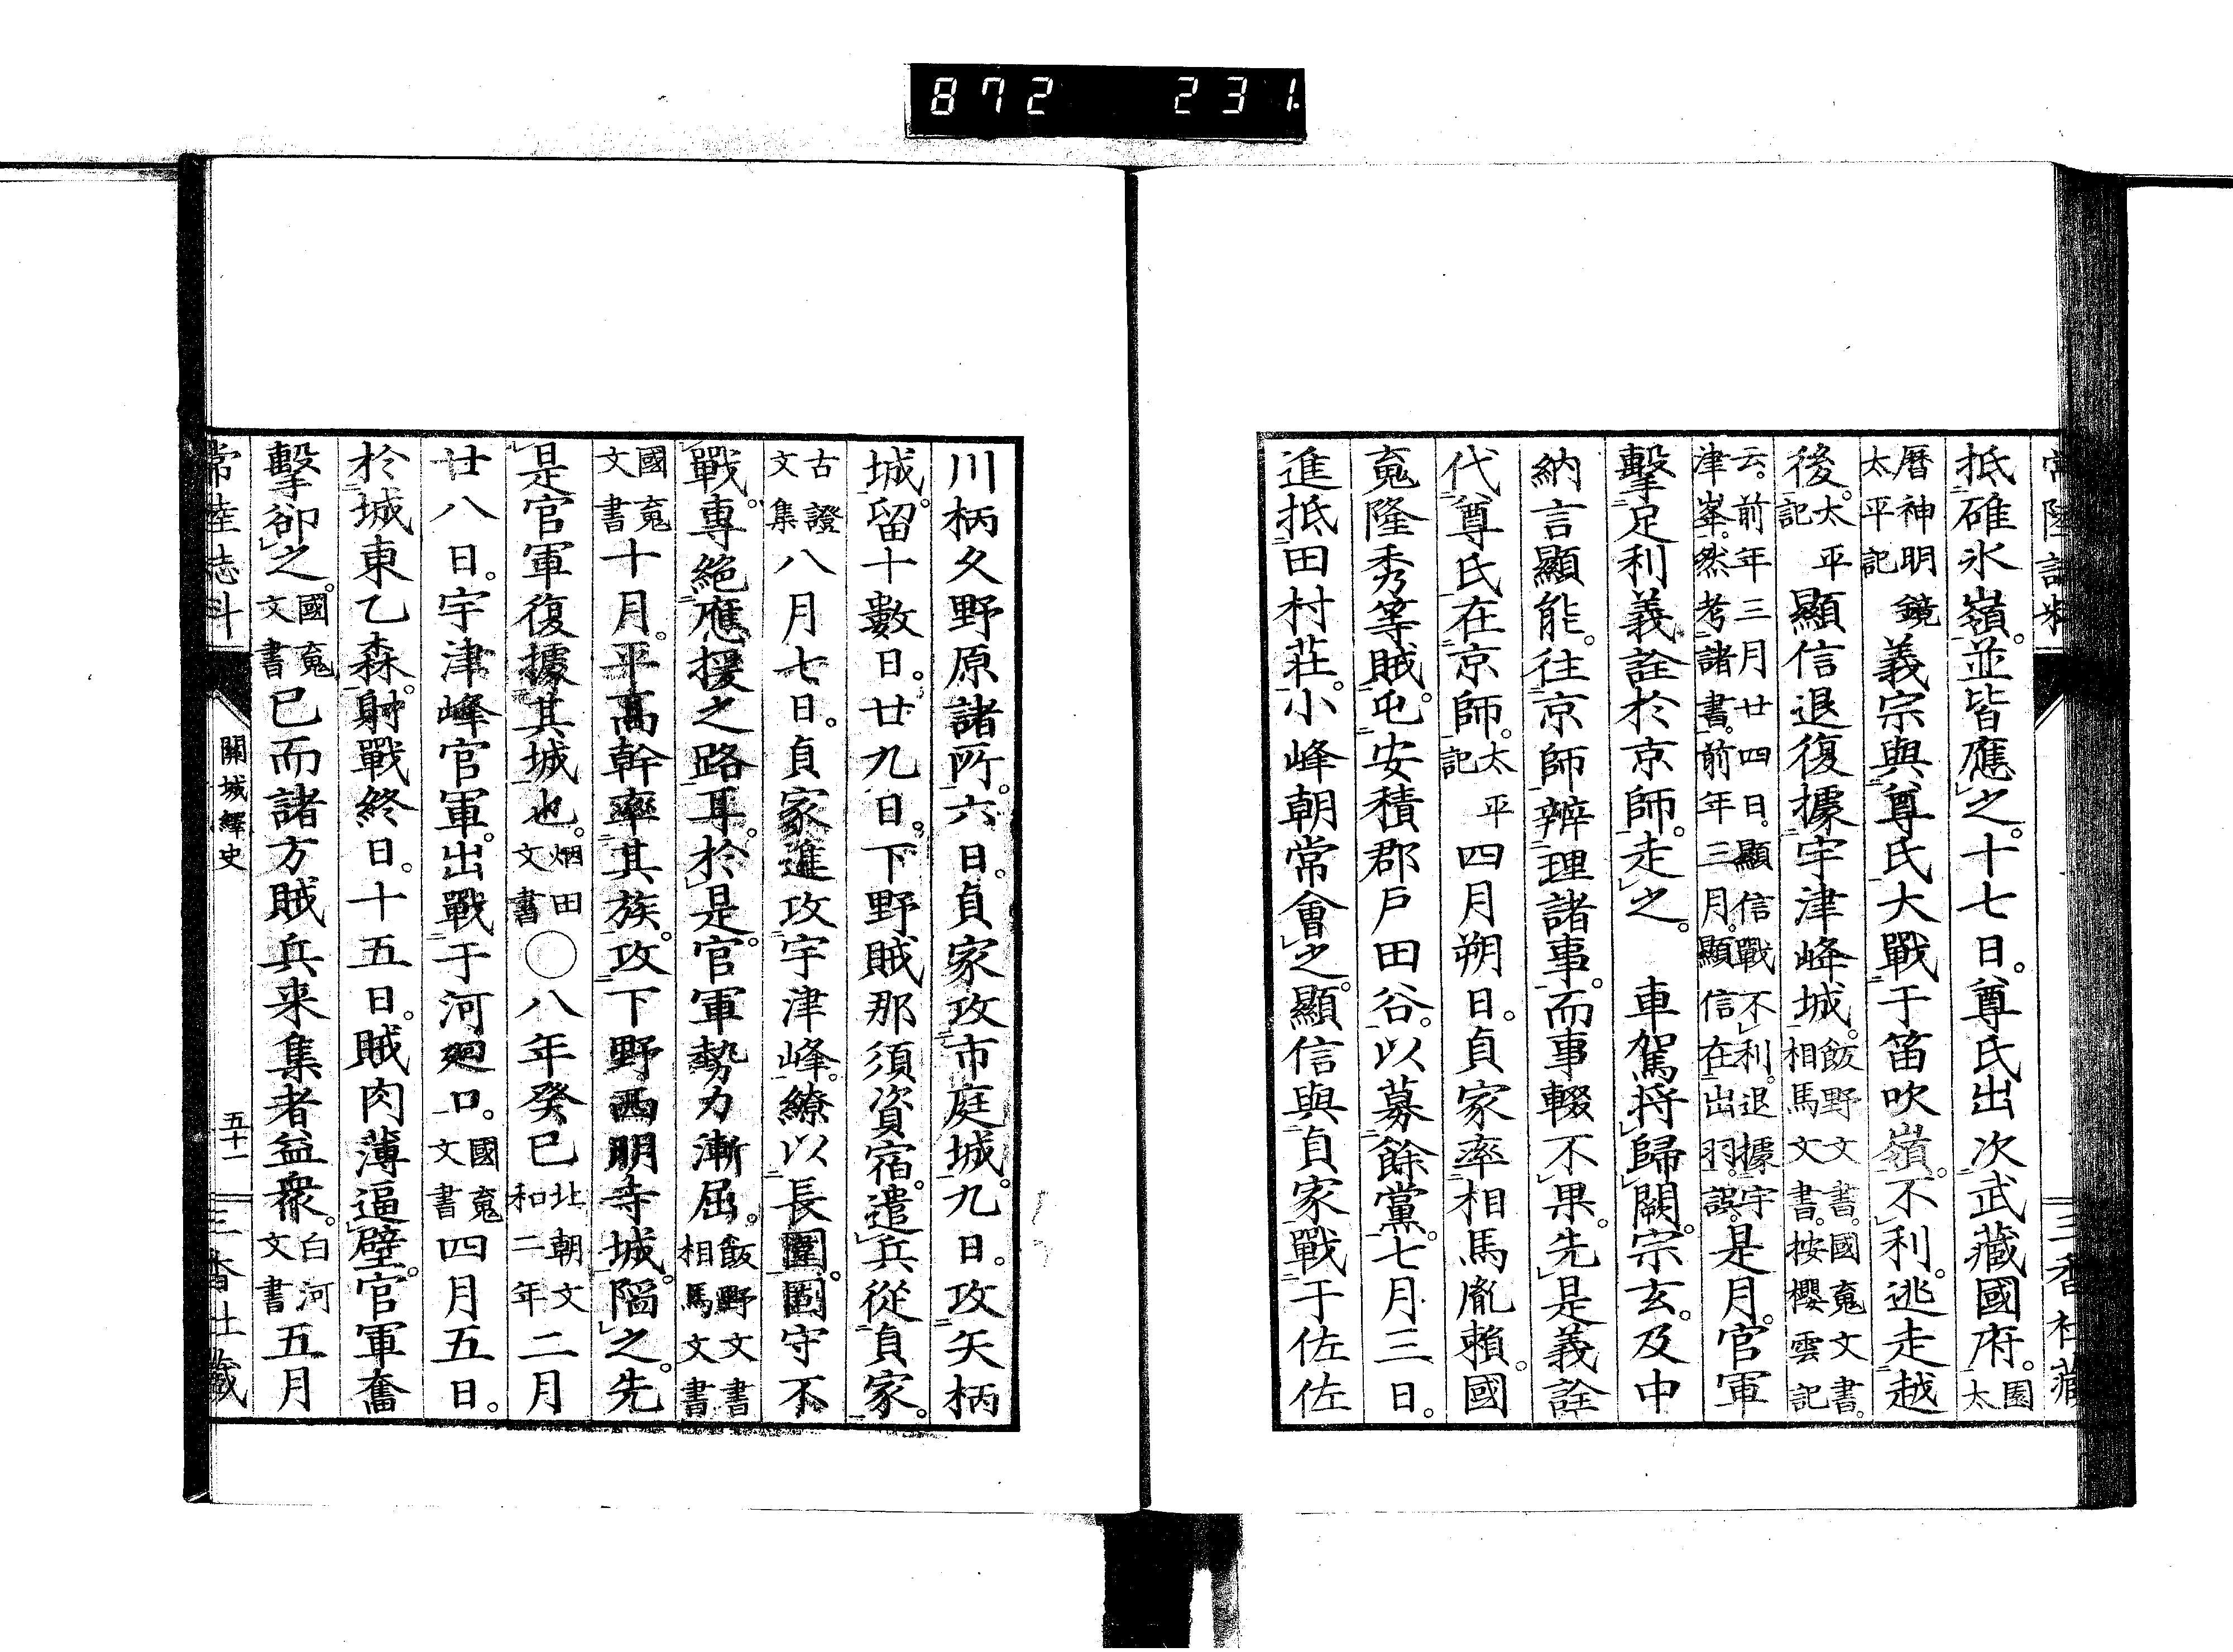 872 231
抵碓氷嶺。並皆應之。十七日。尊氏出次武藏國府。園太
曆神明鏡太平記義宗與尊氏大戰于笛吹嶺。不利。逃走越
後。太平記顯信退復據宇津峰城。飯野文書。國䰟文書。相馬文書。按櫻雲記
云。前年三月廿四日。顯信戰不利。退據宇津峯。然考諸書。前年三月。顯信在出羽。誤。是月。官軍
擊足利義詮於京師。走之。車駕將歸闕。宗玄。及中
納言顯能。往京師辨理諸事。而事輟不果。先是義詮
代尊氏在京師。太平記四月朔日。貞家率相馬胤賴。國
䰟隆秀等賊。屯安積郡戶田谷。以募餘黨。七月三日。
進抵田村莊。小峰朝常會之。顯信與貞家戰于佐佐
川柄久野原諸所。六日。貞家攻市庭城。九日。攻矢柄
城。留十數日。廿九日。下野賊那須資宿。遣兵從貞家。
古證文集八月七日。貞家進攻宇津峰。繚以長圍。固守不
戰。專絕應援之路耳。於是。官軍勢力漸屈。飯野文書相馬文書
國䰟文書十月。平高幹率其族。攻下野西明寺城。陷之。先
是官軍復據其城也。烟田文書○八年癸巳北朝文和二年二月
廿八日。宇津峰官軍。出戰于河廻口。國䰟文書四月五日。
於城東乙森。射戰終日。十五日。賊肉薄逼壁。官軍奮
擊卻之。國䰟文書已而諸方賊兵来集者益衆。白河文書五月
常陸志料 關城繹史 五十一 三香社藏